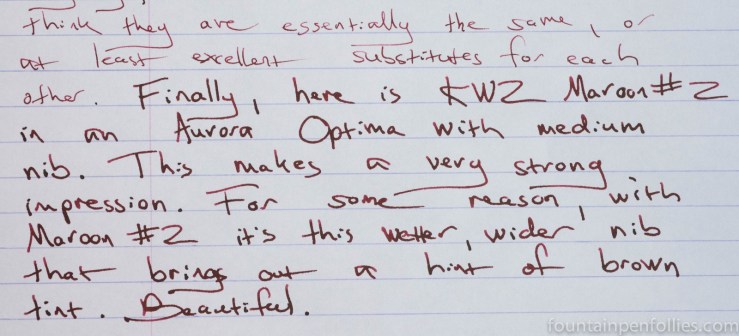 think they are essentially the same, or
at least excellent substitutes for each
other. Finally, here is KWZ Maroon #2
in an Aurora Optima with medium
nib. This makes a very strong
impression. For some reason, with
Maroon #2 it's this wetter, wider nib
that brings out a hint of brown
tint. Beautiful.
fountainpenfollies.com